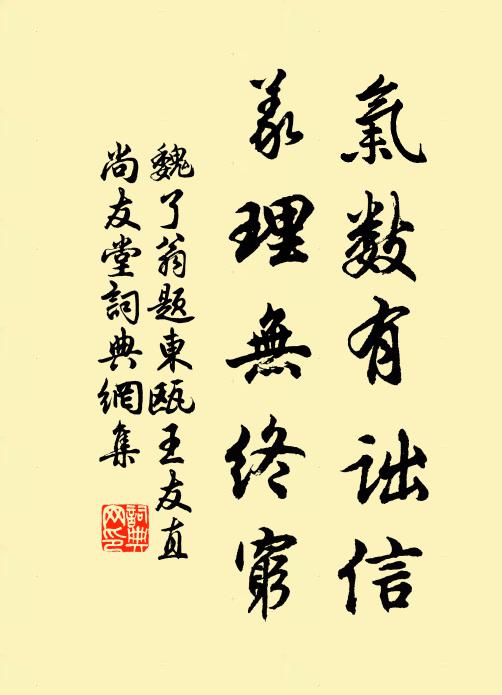 氣數有詘信
義理無終窮
魏了翁題東甌王友直
尚友堂詞典網集
詞典网印